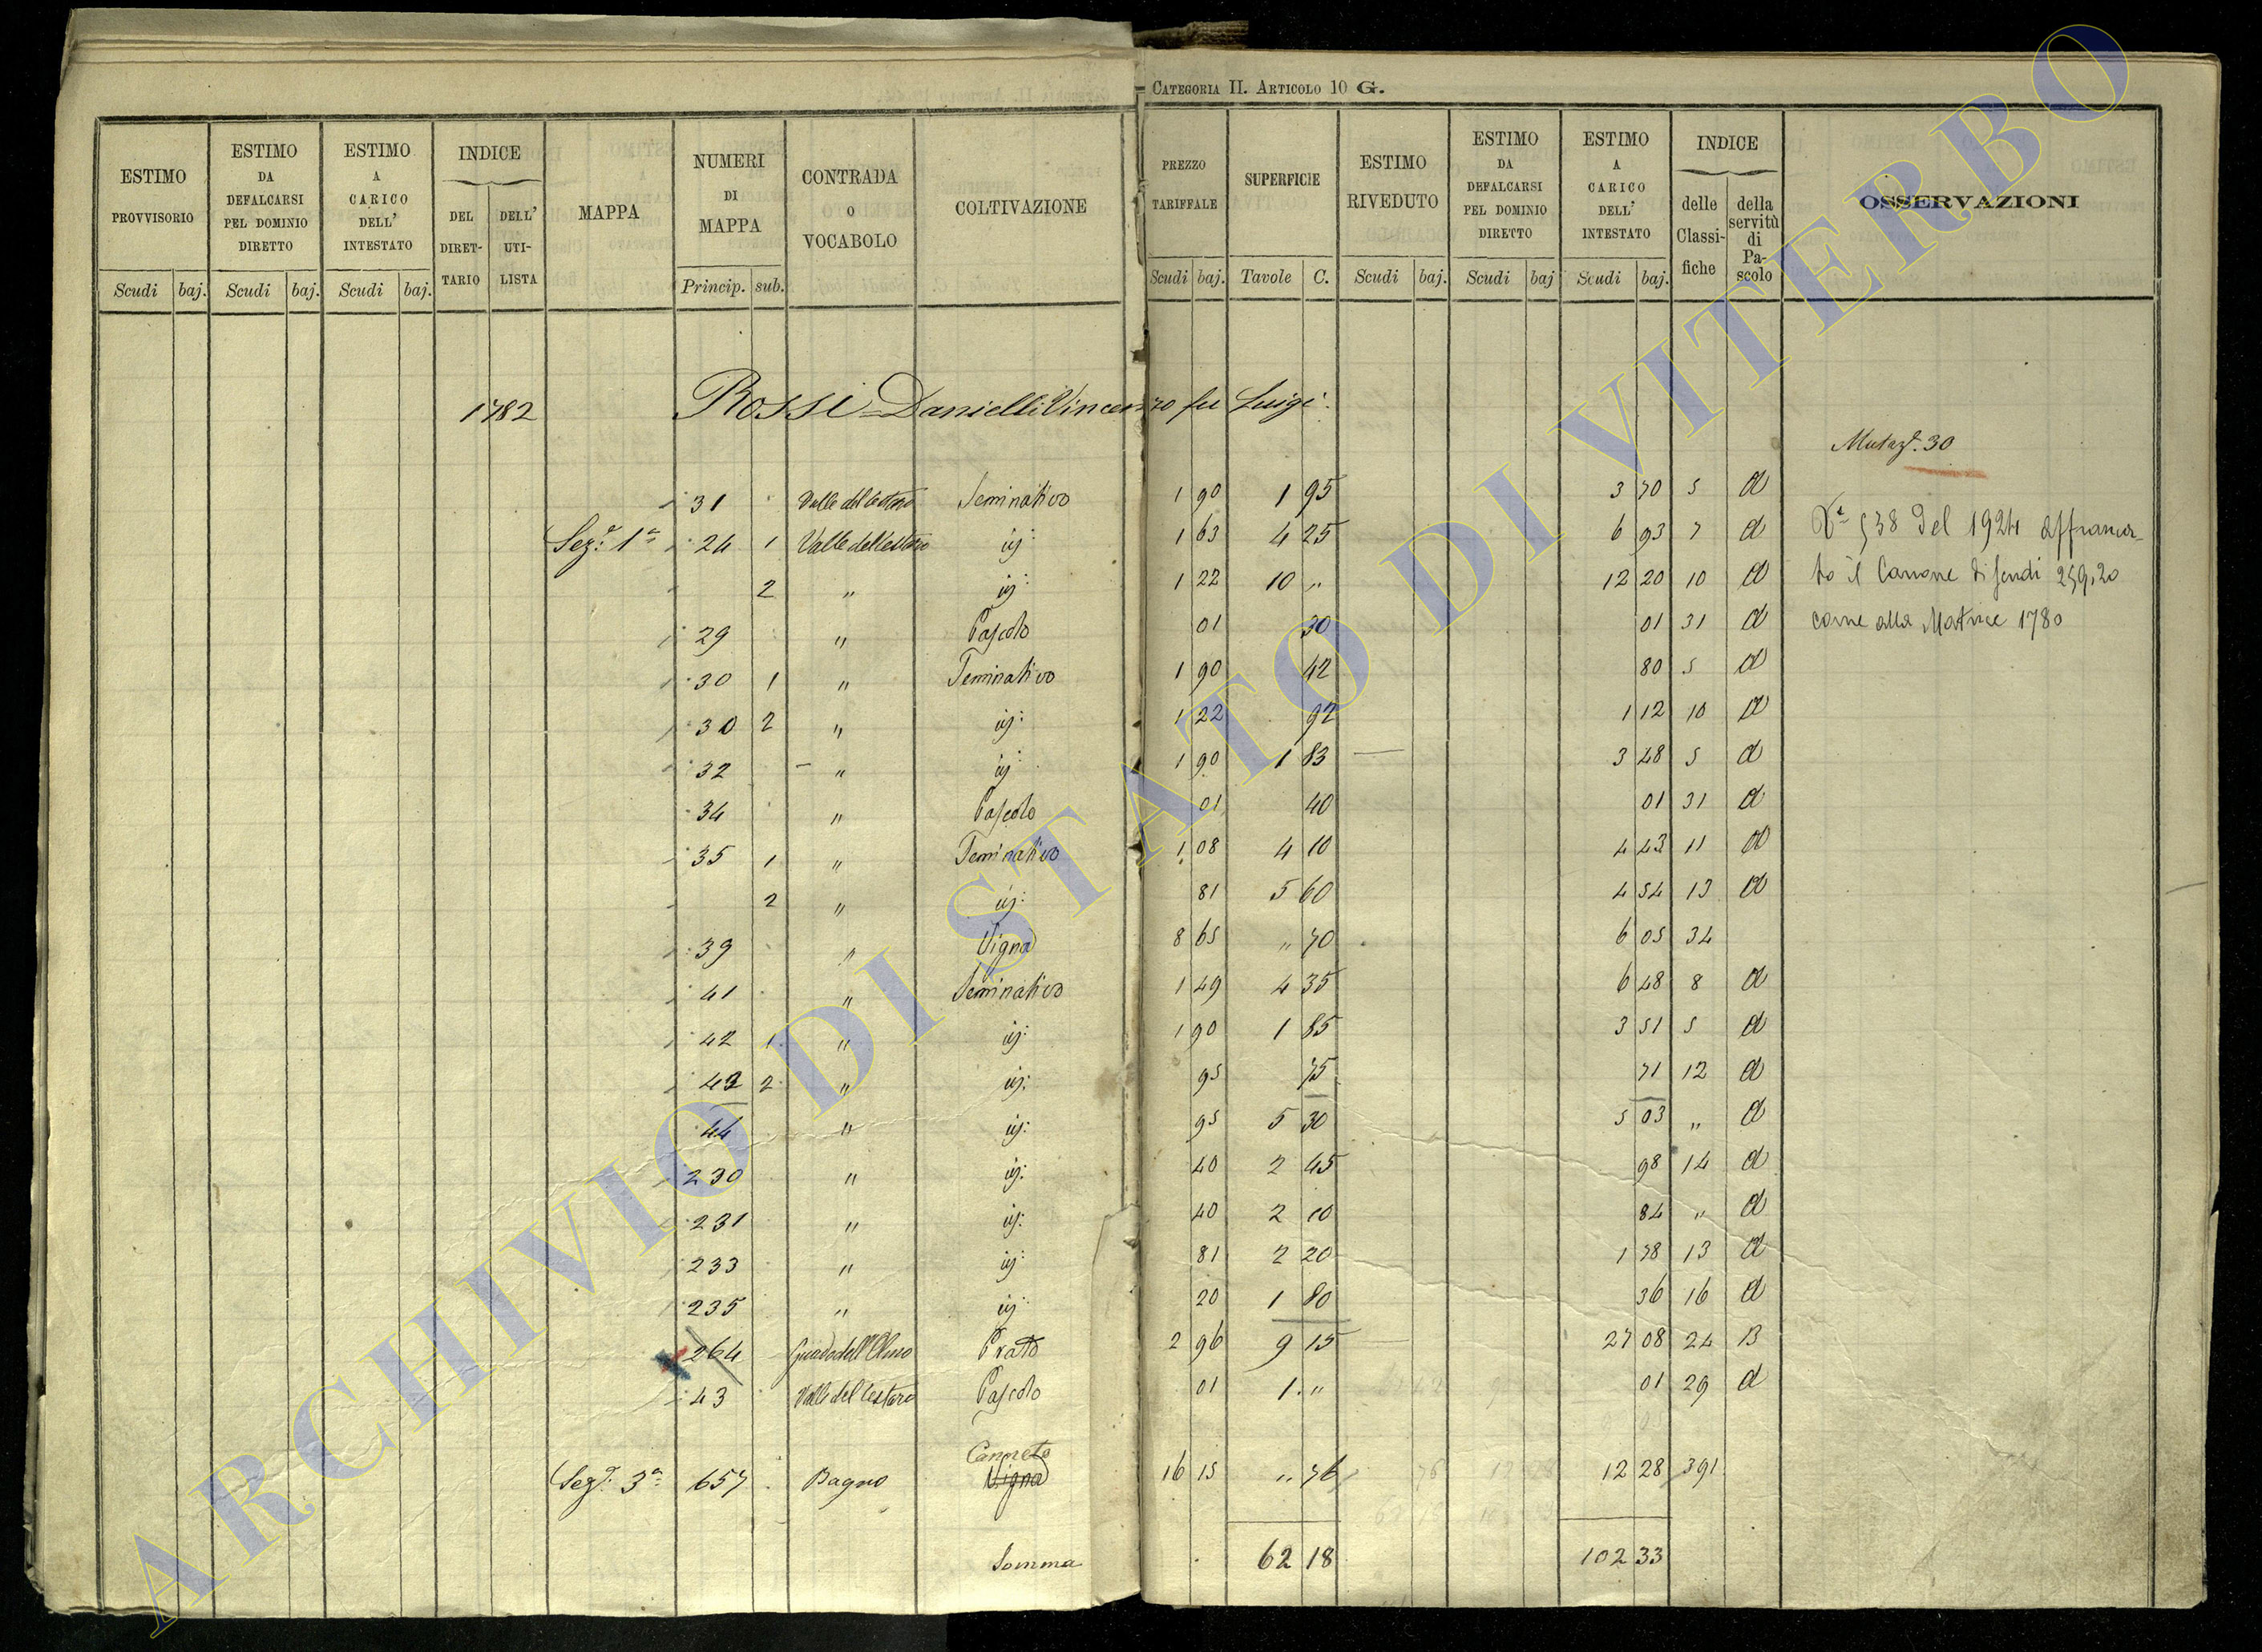 CATEGORIA II. ARTICOLO 10 G.
ESTIMO PROVVISORIO Scudi baj.
ESTIMO DA DEFALCARSI PEL DOMINIO DIRETTO Scudi baj.
ESTIMO A CARICO DELL' INTESTATO Scudi baj.
INDICE DEL DIRETTARIO DELL' UTILISTA
MAPPA
NUMERI DI MAPPA Princip. sub.
CONTRADA O VOCABOLO
COLTIVAZIONE
PREZZO TARIFFALE Scudi baj.
SUPERFICIE Tavole C.
ESTIMO RIVEDUTO Scudi baj.
ESTIMO DA DEFALCARSI PEL DOMINIO DIRETTO Scudi baj
ESTIMO A CARICO DELL' INTESTATO Scudi baj.
INDICE delle Classifiche della servitù di Pascolo
OSSERVAZIONI
1782 Rossi-Danielli Vincenzo fu Luigi
Mutaz. 30
31 Valle del Cestaro Seminativo 1 90 1 95 3 70 5 a
Sez. 1a 24 1 Valle del Cestaro id: 1 63 4 25 6 93 7 a
2 " id: 1 22 10 " 12 20 10 a
29 " Pascolo 01 30 01 31 a
30 1 " Seminativo 1 90 42 80 5 a
30 2 " id: 1 22 92 1 12 10 a
32 " id: 1 90 1 83 3 48 5 a
34 " Pascolo 01 40 01 31 a
35 1 " Seminativo 1 08 4 10 4 43 11 a
2 " id: 81 5 60 4 54 13 a
39 " Vigna 8 65 " 70 6 05 34
41 " Seminativo 1 49 4 35 6 48 8 a
42 1 " id: 1 90 1 85 3 51 5 a
42 2 " id: 95 75 71 12 a
44 " id: 95 5 30 5 03 " a
230 " id: 40 2 45 98 14 a
231 " id: 40 2 10 84 " a
233 " id: 81 2 20 1 78 13 a
235 " id: 20 1 80 36 16 a
264 Guado dell'Olmo Prato 2 96 9 15 27 08 24 B
43 Valle del Cestaro Pascolo 01 1 " 01 29 a
Canneto
Sez. 3a 657 Bagno Vigna 16 15 " 76 12 28 391
Somma 62 18 102 33
538 del 1924 affranca-
to il Canone di scudi 259,20
come alla Matrice 1780
ARCHIVIO DI STATO DI VITERBO